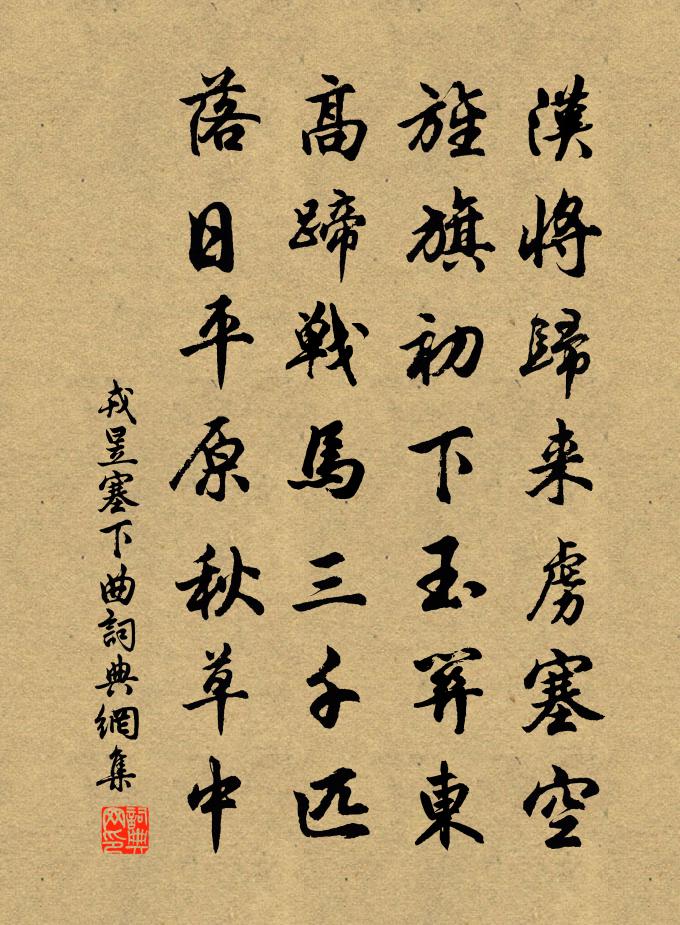 漢將歸来虜塞空
旌旗初下玉関東
高蹄戦馬三千匹
落日平原秋草中
戎昱塞下曲詞典網集
詞典网印